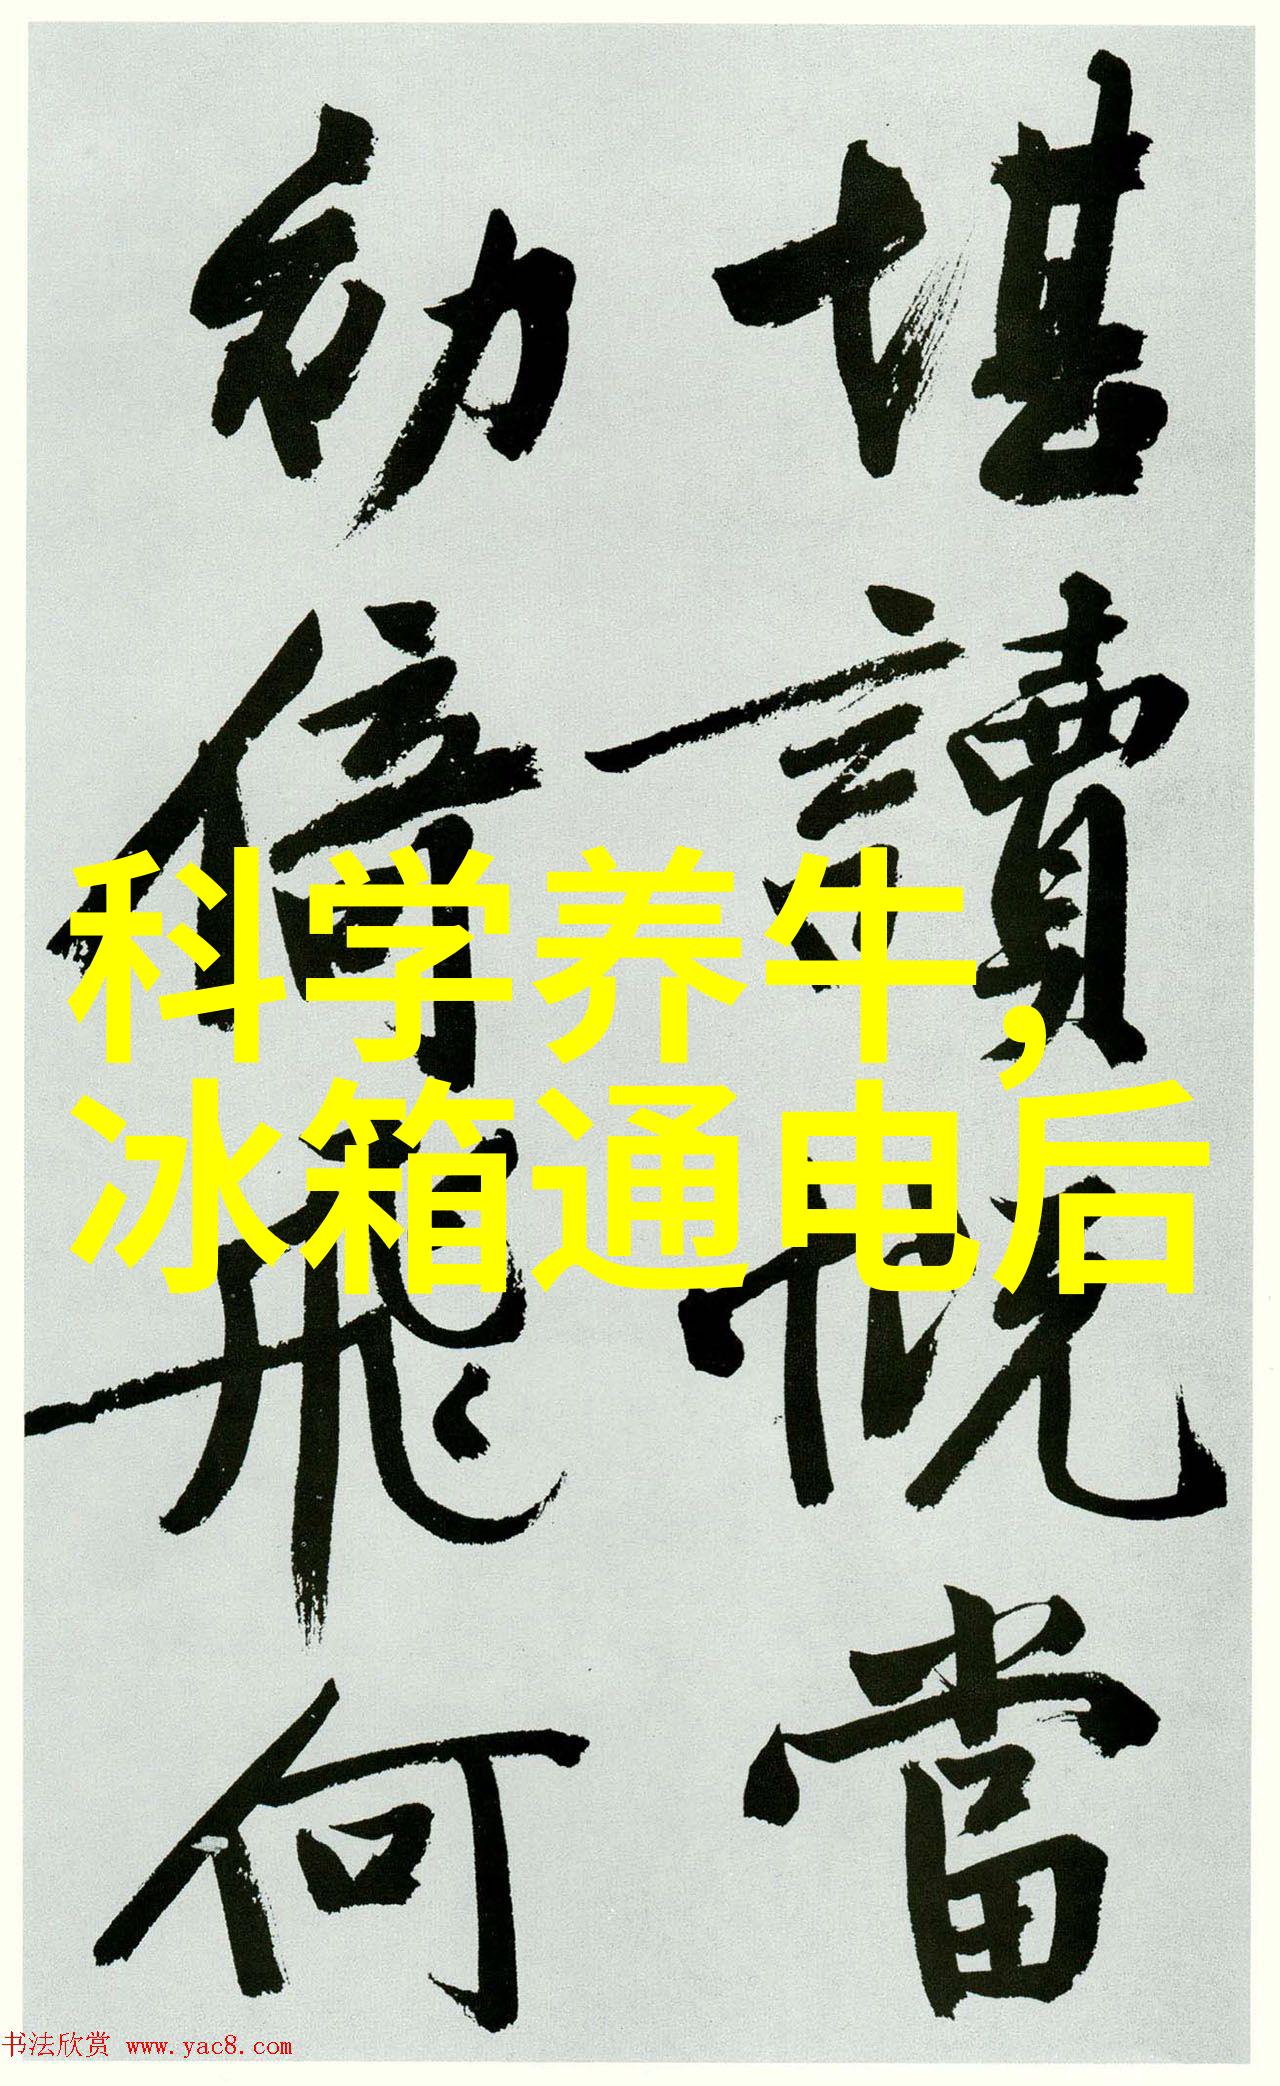 堪讀當
倚飛何
科学养牛，
冰箱通电后
书法欣赏 www.yac8.com